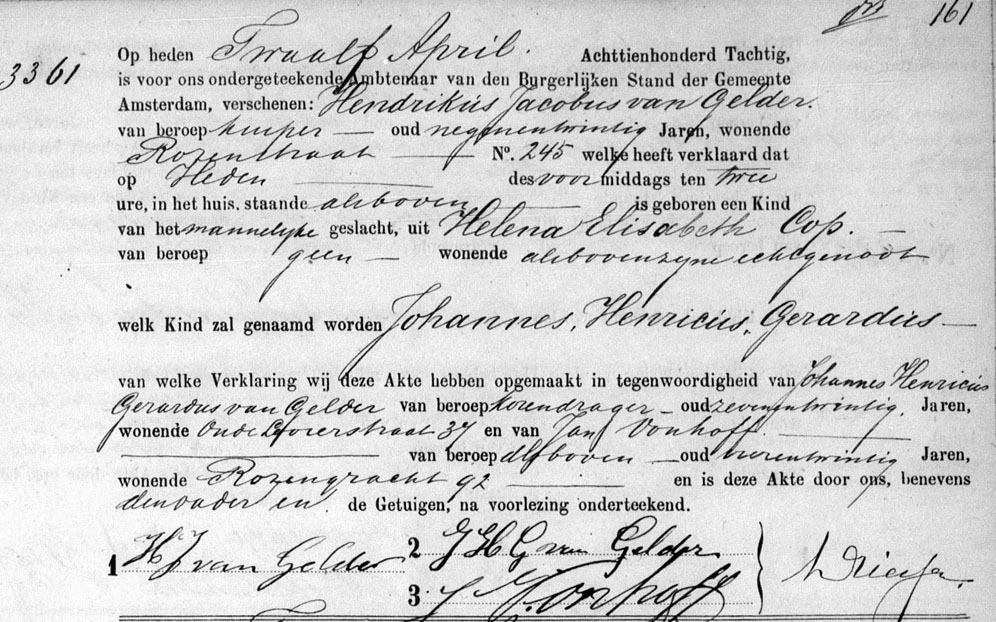 161
3361
Op heden Twaalf April. Achttienhonderd Tachtig,
is voor ons ondergeteekende Ambtenaar van den Burgerlijken Stand der Gemeente
Amsterdam, verschenen: Hendrikus Jacobus van Gelder.
van beroep kuiper — oud negenentwintig Jaren, wonende
Rozenstraat — No. 245 welke heeft verklaard dat
op Heden — des voor middags ten twee
ure, in het huis, staande alsboven — is geboren een Kind
van het mannelijke geslacht, uit Helena Elisabeth Cop. —
van beroep geen — wonende alsboven zijne echtgenoot
welk Kind zal genaamd worden Johannes, Henricus, Gerardus —
van welke Verklaring wij deze Akte hebben opgemaakt in tegenwoordigheid van Johannes Henricus
Gerardus van Gelder van beroep korendrager — oud zevenentwintig, Jaren,
wonende Oude 37 en van Jan Vonhoff. —
— van beroep alsboven — oud Jaren,
wonende Rozengracht 92 — en is deze Akte door ons, benevens
den vader en de Getuigen, na voorlezing onderteekend.
1 H J van Gelder 2 J H G van Gelder
3 J Vonhoff